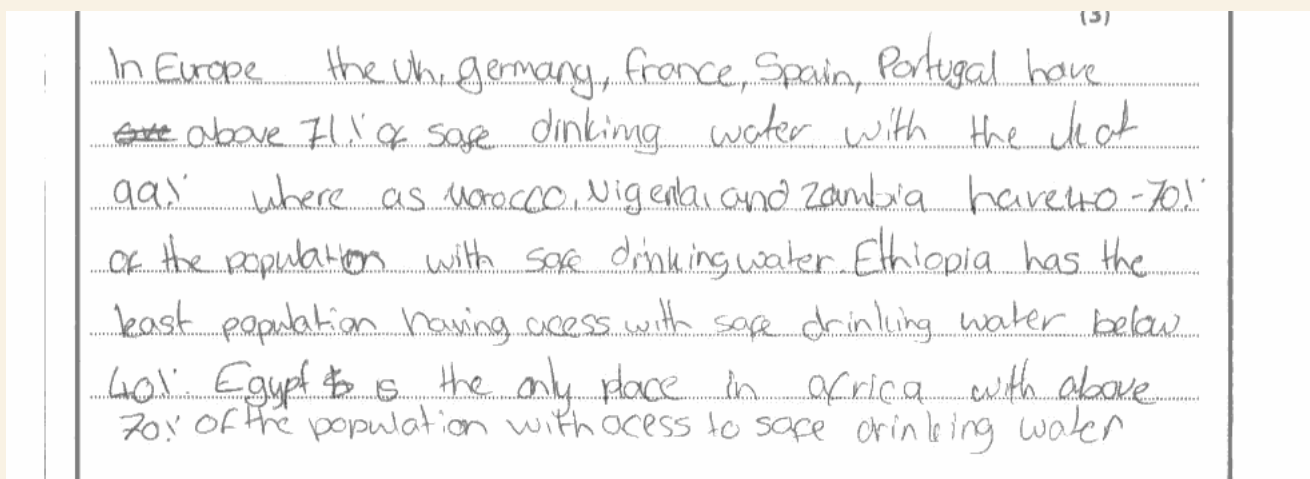 (3)
In Europe the Uk, germany, france, Spain, Portugal have
above 71% of safe dinking water with the Uk at
99% where as Morocco, Nigeria, and Zambia have 40-70%
of the population with safe drinking water. Ethiopia has the
least population having acess with safe drinking water below
40%. Egypt is the only place in africa with above
70% of the population with acess to safe drinking water